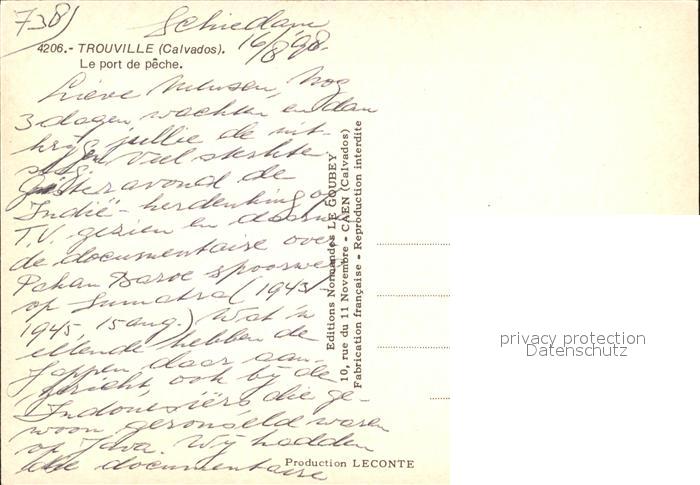 738)
Schiedam
16/8 '98.
4206.- TROUVILLE (Calvados).
Le port de pêche.
Lieve Mensen, Nog
3 dagen wachten en dan
krijgen jullie de uit-
slag. Veel sterkte.
Gisteravond de
Indië-herdenking op
T.V. gezien en daarna
de documentaire over
Pakan Baroe spoorweg
op Sumatra (1943/
1945 15 aug.) Wat 'n
ellende hebben de
Jappen daar aan-
gericht, ook bij de
Indonesiërs die ge-
woon geronseld waren
op Java. Wij hadden
documentaire
Editions Normandes LE GOUBEY
10, rue du 11 Novembre - CAEN (Calvados)
Fabrication française - Reproduction interdite
Production LECONTE
privacy protection
Datenschutz